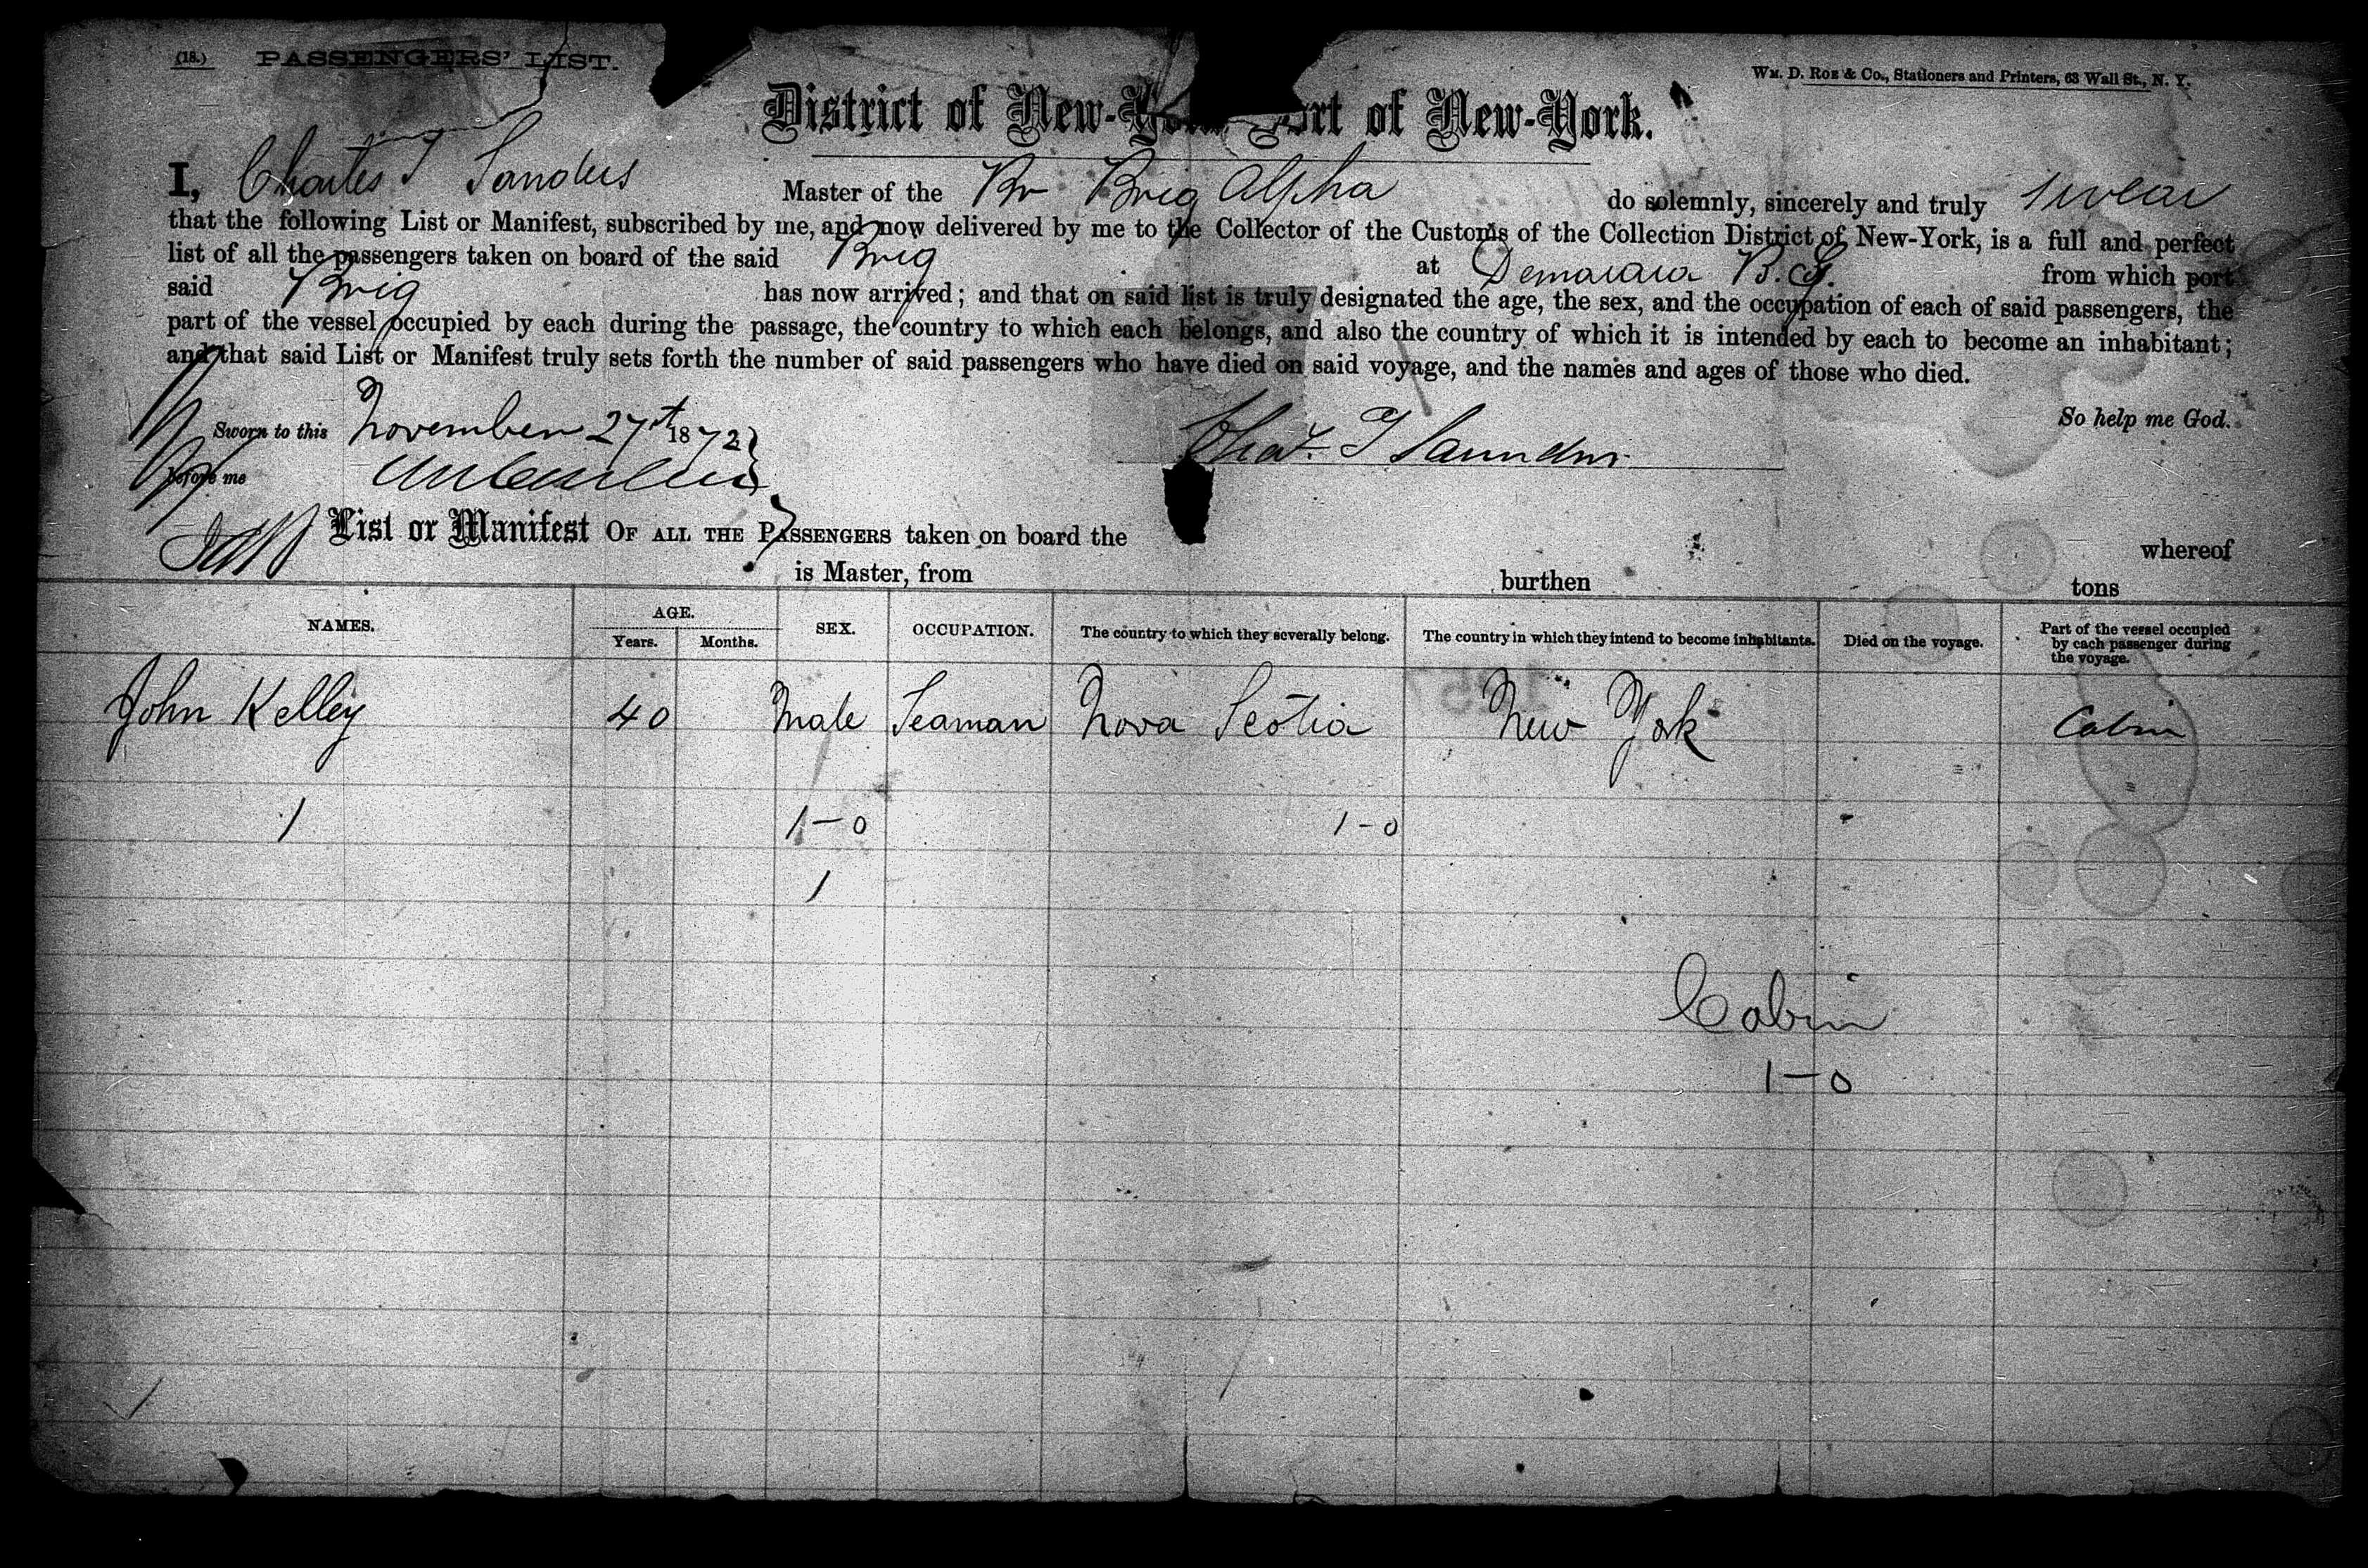 (18.) PASSENGERS' LIST.
WM. D. ROE & Co., Stationers and Printers, 63 Wall St., N. Y.
District of New-York Port of New-York.
I, Charles T Sanders Master of the Br Brig Alpha do solemnly, sincerely and truly swear
that the following List or Manifest, subscribed by me, and now delivered by me to the Collector of the Customs of the Collection District of New-York, is a full and perfect
list of all the passengers taken on board of the said Brig at Demarara B.G. from which port
said Brig has now arrived; and that on said list is truly designated the age, the sex, and the occupation of each of said passengers, the
part of the vessel occupied by each during the passage, the country to which each belongs, and also the country of which it is intended by each to become an inhabitant;
and that said List or Manifest truly sets forth the number of said passengers who have died on said voyage, and the names and ages of those who died.
So help me God.
Sworn to this November 27th 1872
Chas. T Saunders
before me
List or Manifest OF ALL THE PASSENGERS taken on board the whereof
is Master, from burthen tons
NAMES. AGE. Years. Months. SEX. OCCUPATION. The country to which they severally belong. The country in which they intend to become inhabitants. Died on the voyage. Part of the vessel occupied by each passenger during the voyage.
John Kelley 40 Male Seaman Nova Scotia New York Cabin
1 1-0 1-0
1
Cabin
1-0